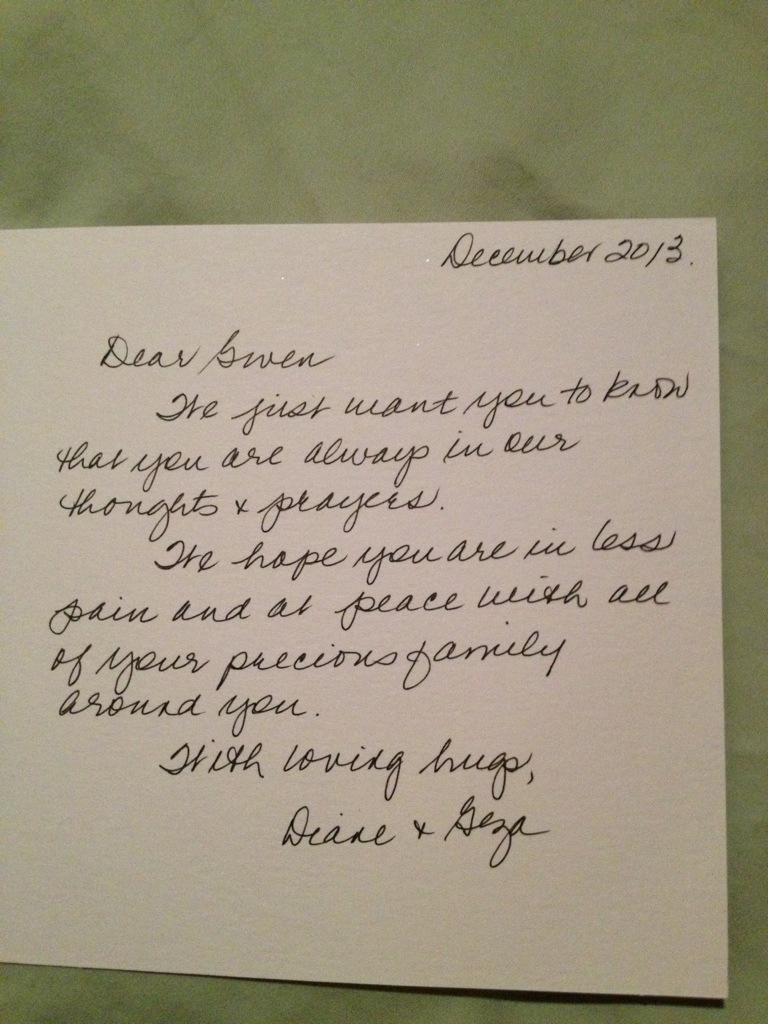 December 2013.
Dear Gwen
We just want you to know
that you are always in our
thoughts & prayers.
We hope you are in less
pain and at peace with all
of your precious family
around you.
With loving hugs,
Diane & Geza